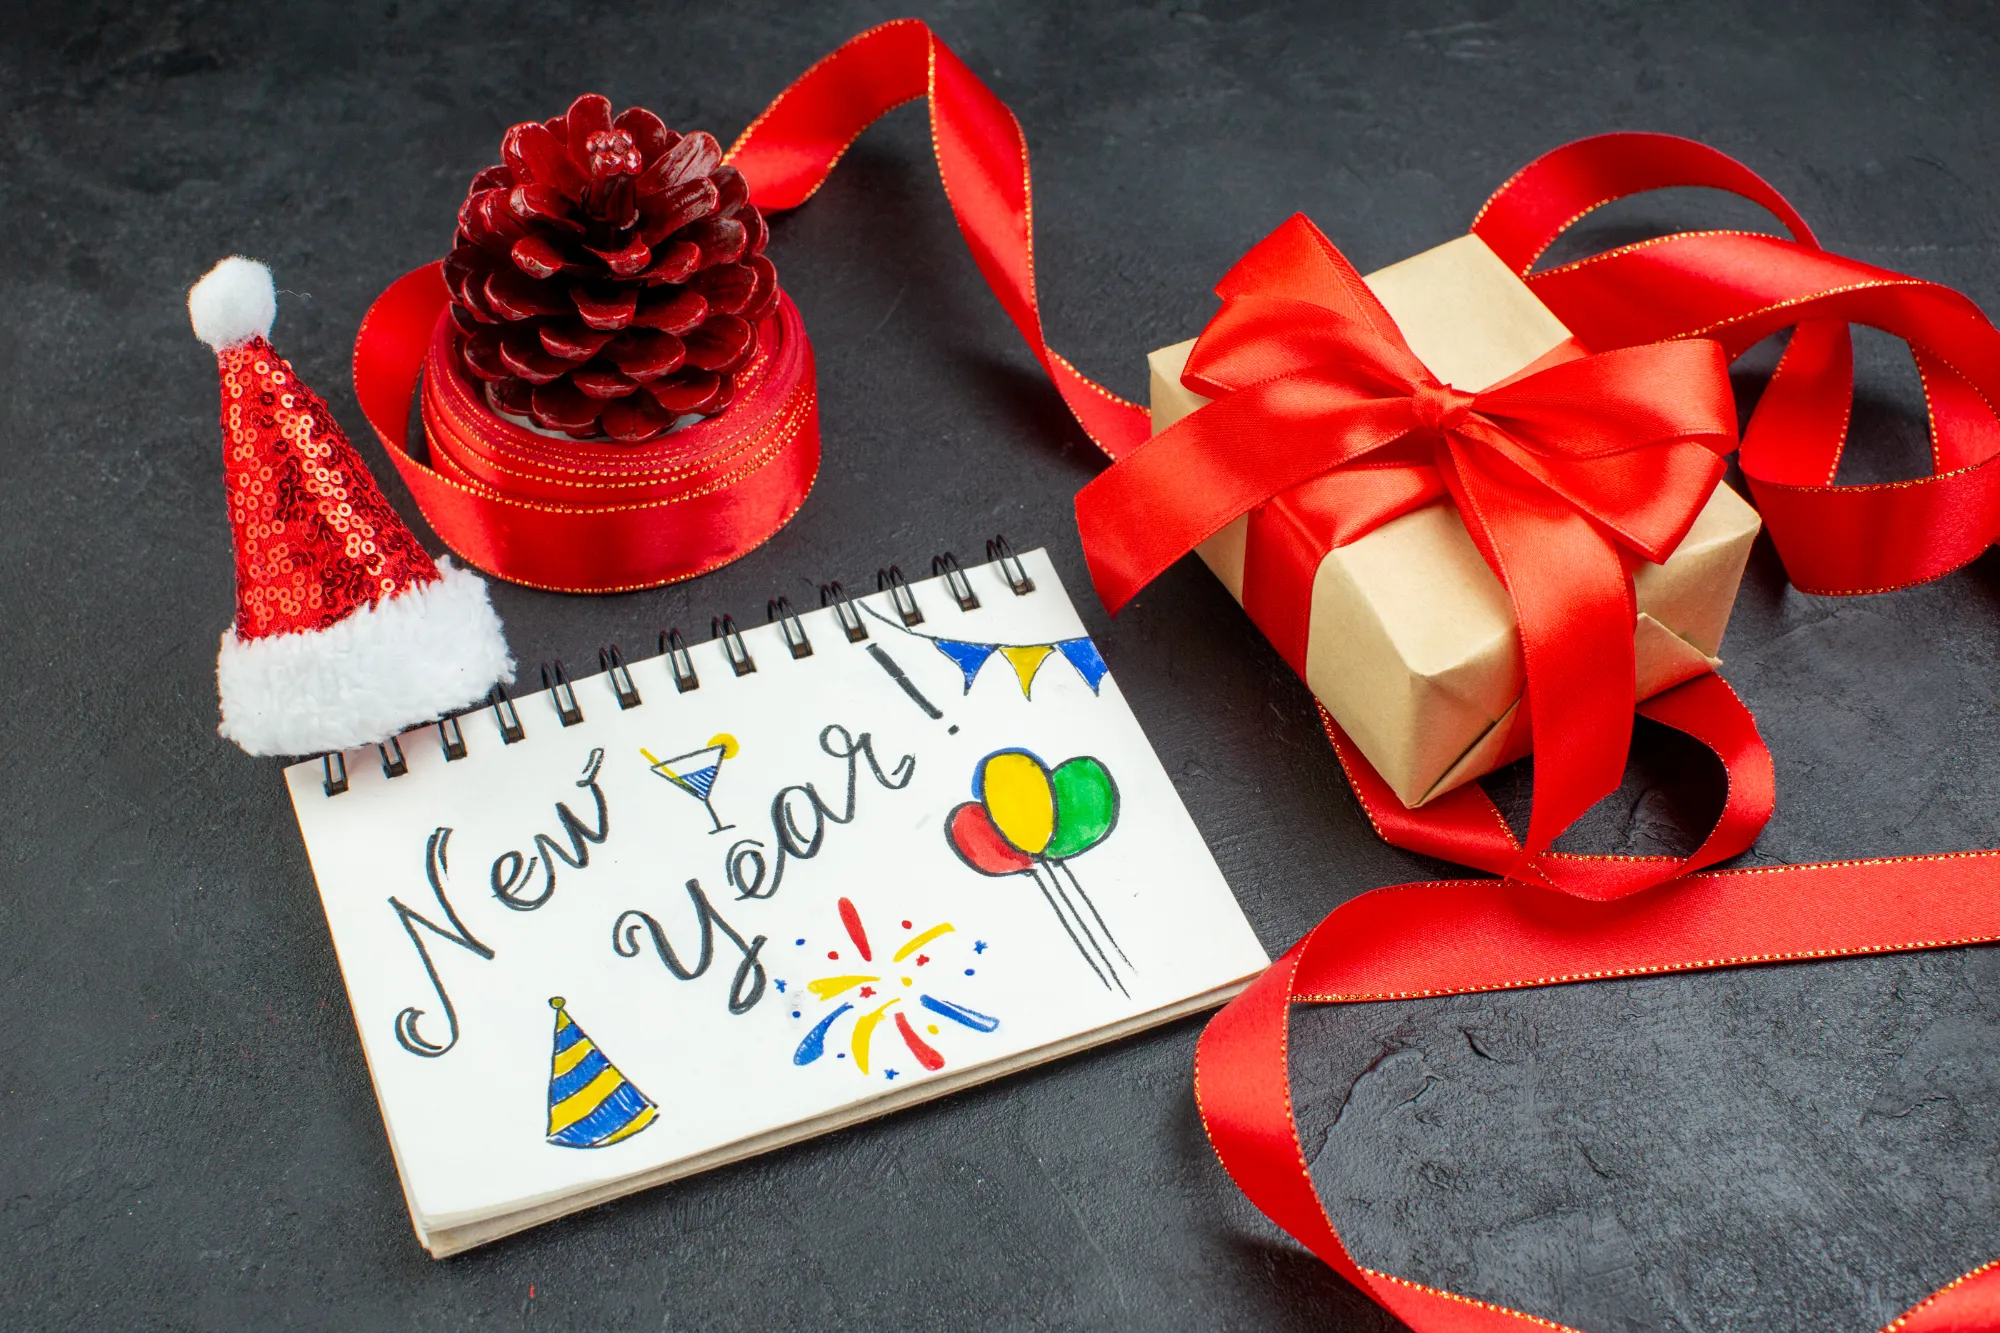 New
Year!